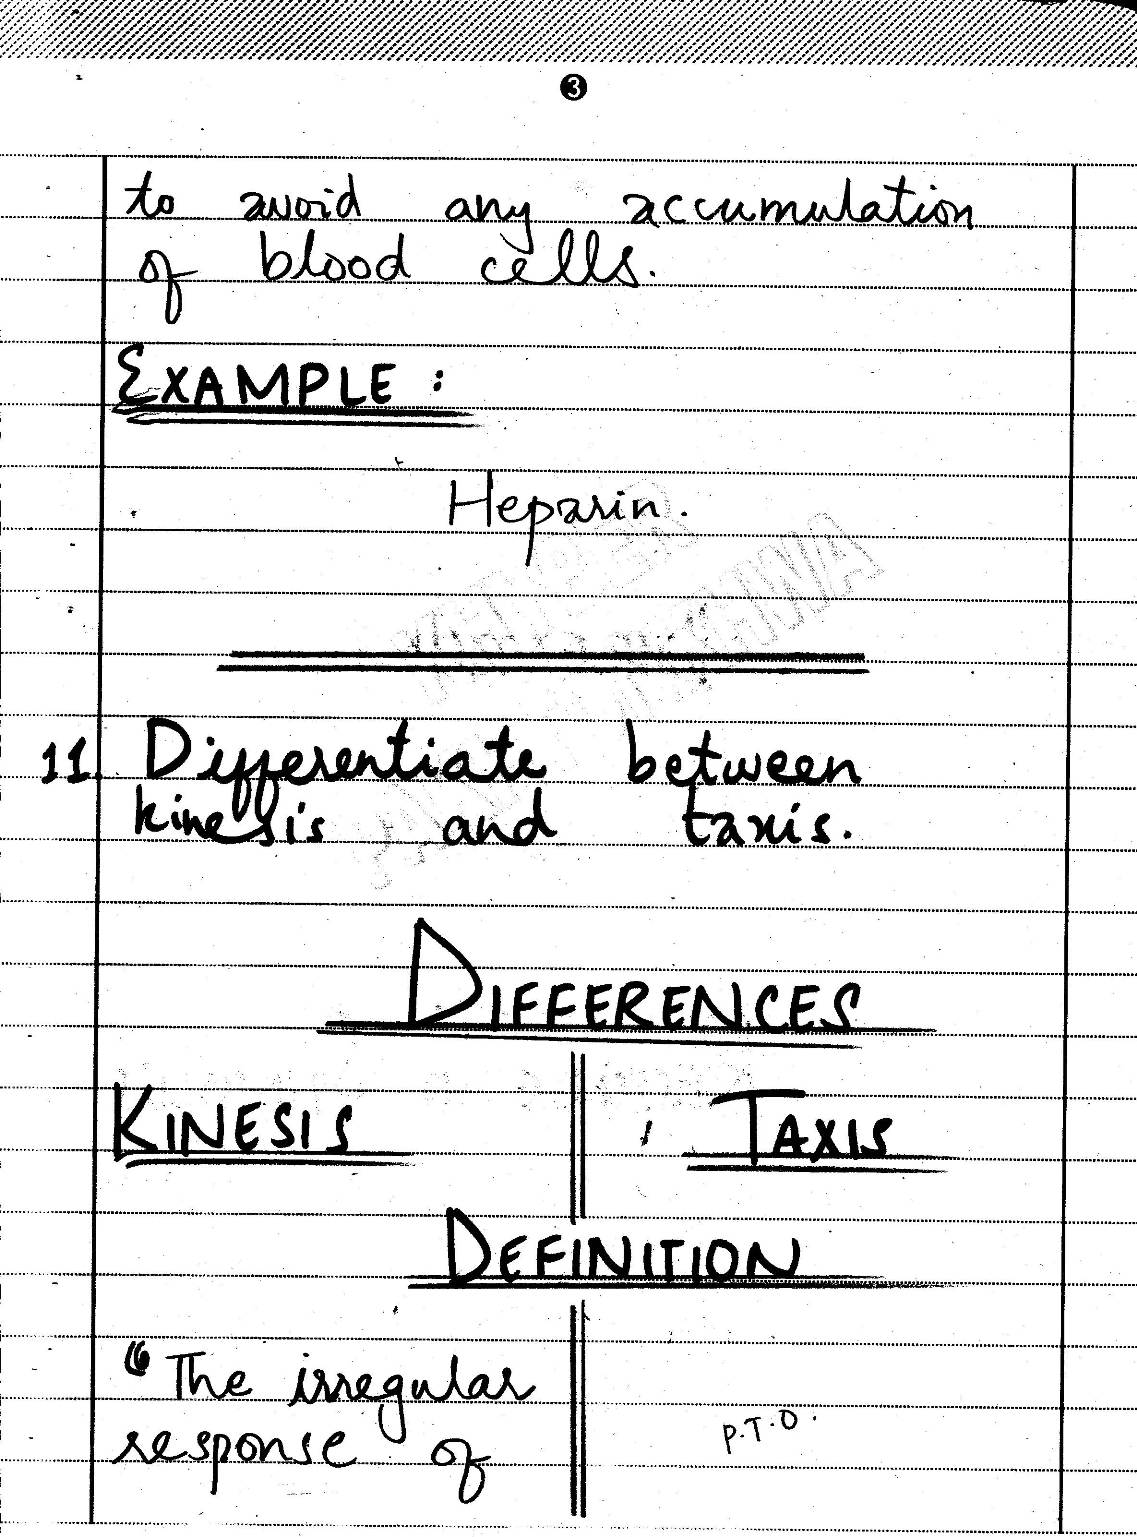 3
to avoid any accumulation
of blood cells.
EXAMPLE :
Heparin.
11. Differentiate between
kinesis and taxis.
DIFFERENCES
KINESIS
TAXIS
DEFINITION
“The irregular
response of
P.T.O.